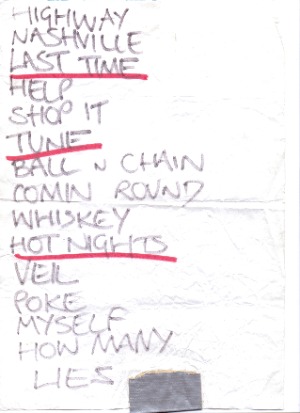 HIGHWAY
NASHVILLE
LAST TIME
HELP
SHOP IT
TUNE
BALL N CHAIN
COMIN ROUND
WHISKEY
HOT NIGHTS
VEIL
POKE
MYSELF
HOW MANY
LIES